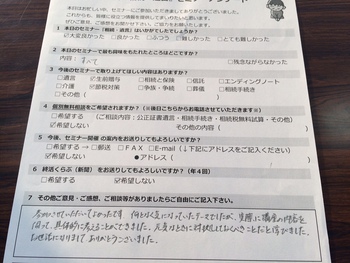 本日はお忙しい中、セミナーにご参加いただきましてありがとうございました。
これからも、皆様に役立つ情報を提供してまいりたいと思います。
1 本日のセミナー「相続・遺言」はいかがでしたでしょうか？
☑大変良かった □良かった □ふつう □難しかった □とても難しかった
2 本日のセミナーで最も興味をもたれたところはどこですか？
内容：すべて □残念ながらなかった
3 今後のセミナーで取り上げてほしい内容はありますか？
□遺言 ☑生前贈与 □相続と保険 □信託 □エンディングノート
□介護 ☑節税対策 □争族・争続 □葬儀 □相続手続き
□その他（ ）
4 個別無料相談をご希望されますか？（※後日こちらからお電話させていただきます※）
□希望する（ご相談内容：公正証書遺言・相続手続き・相続税無料試算・その他）
☑希望しない その他の内容（ ）
5 今後、セミナー開催の案内をお送りしてもよろしいですか？
□希望する → □郵送 □ＦＡＸ □E-mail（↓下記にアドレスをご記入ください）
☑希望しない ●アドレス（ ）
6 終活くらぶ（新聞）をお送りしてもよろしいですか？（年４回）
□希望する ☑希望しない
7 その他ご意見・ご感想、ご相談等がありましたらご自由にご記入下さい。
参加させていただいてよかったです。何となく気になっていたテーマでしたが、実際に講座の時間を
使って、具体的に考えることができました。大変なときに対処しておくべきことだと学びました。
お世話になりまして、ありがとうございました。